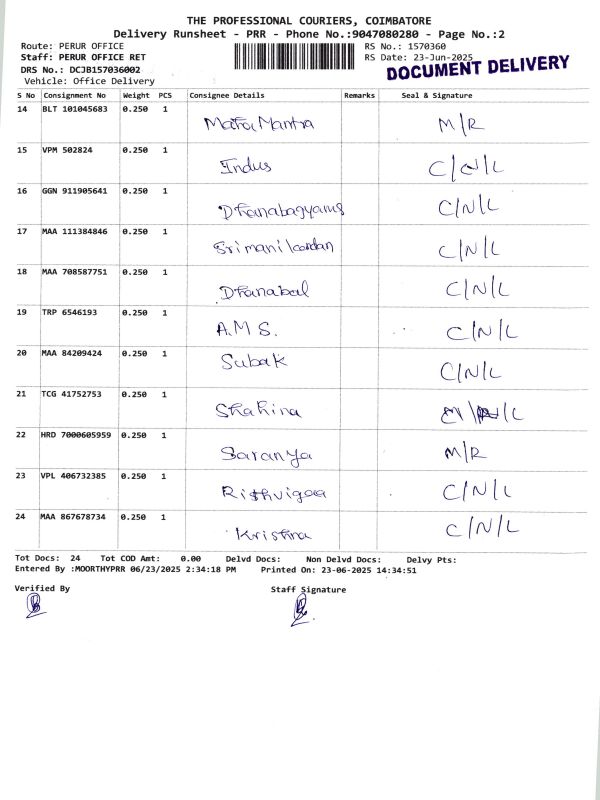 THE PROFESSIONAL COURIERS, COIMBATORE
Delivery Runsheet - PRR - Phone No.:9047080280 - Page No.:2
Route: PERUR OFFICE RS No.: 1570360
Staff: PERUR OFFICE RET RS Date: 23-Jun-2025
DRS No.: DCJB157036002 DOCUMENT DELIVERY
Vehicle: Office Delivery
S No Consignment No Weight PCS Consignee Details Remarks Seal & Signature
14 BLT 101045683 0.250 1 Mantra M/R
15 VPM 502824 0.250 1 Indus C/N/L
16 GGN 911905641 0.250 1 C/N/L
17 MAA 111384846 0.250 1 C/N/L
18 MAA 708587751 0.250 1 Dhanabal C/N/L
19 TRP 6546193 0.250 1 A.M.S. C/N/L
20 MAA 84209424 0.250 1 Subak C/N/L
21 TCG 41752753 0.250 1 Shahina
22 HRD 7000605959 0.250 1 Saranya M/R
23 VPL 406732385 0.250 1 C/N/L
24 MAA 867678734 0.250 1 Kristina C/N/L
Tot Docs: 24 Tot COD Amt: 0.00 Delvd Docs: Non Delvd Docs: Delvy Pts:
Entered By :MOORTHYPRR 06/23/2025 2:34:18 PM Printed On: 23-06-2025 14:34:51
Verified By Staff Signature